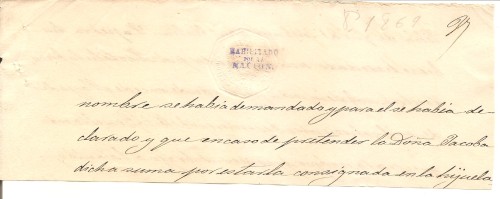 P 1869
HABILITADO
POR LA
NACION.
nombre se habia demandado y para el se habia de
clarado y que en caso de pretender la Doña Jacoba
dicha suma por estarla consignada en la hijuela